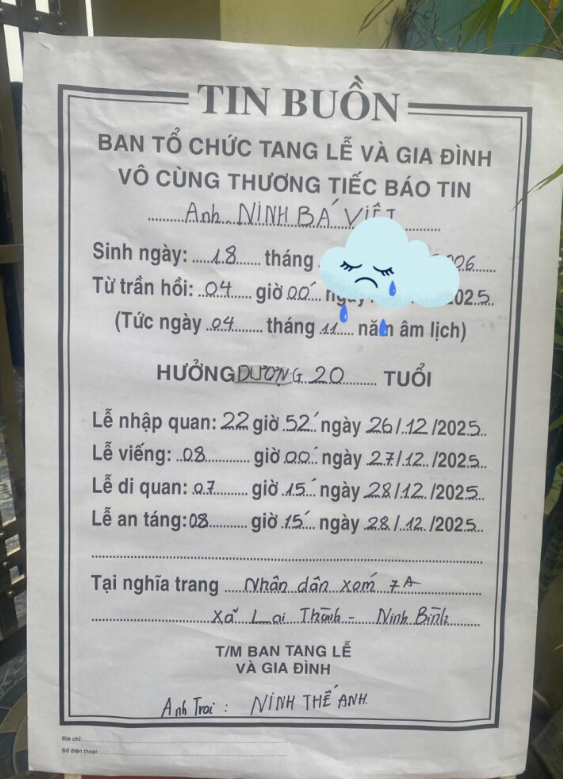 TIN BUỒN
BAN TỔ CHỨC TANG LỄ VÀ GIA ĐÌNH
VÔ CÙNG THƯƠNG TIẾC BÁO TIN
Anh NINH BÁ VIỆT
Sinh ngày: 18 tháng
Từ trần hồi: 04 giờ 00'
(Tức ngày 04 tháng 11 năm âm lịch)
HƯỞNG DƯƠNG 20 TUỔI
Lễ nhập quan: 22 giờ 52' ngày 26/12/2025
Lễ viếng: 08 giờ 00' ngày 27/12/2025
Lễ di quan: 07 giờ 15' ngày 28/12/2025
Lễ an táng: 08 giờ 15' ngày 28/12/2025
Tại nghĩa trang Nhân dân xóm 7A
Xã Lai Thành - Ninh Bình
T/M BAN TANG LỄ
VÀ GIA ĐÌNH
Anh Trai: NINH THẾ ANH
Địa chỉ:
Số điện thoại: